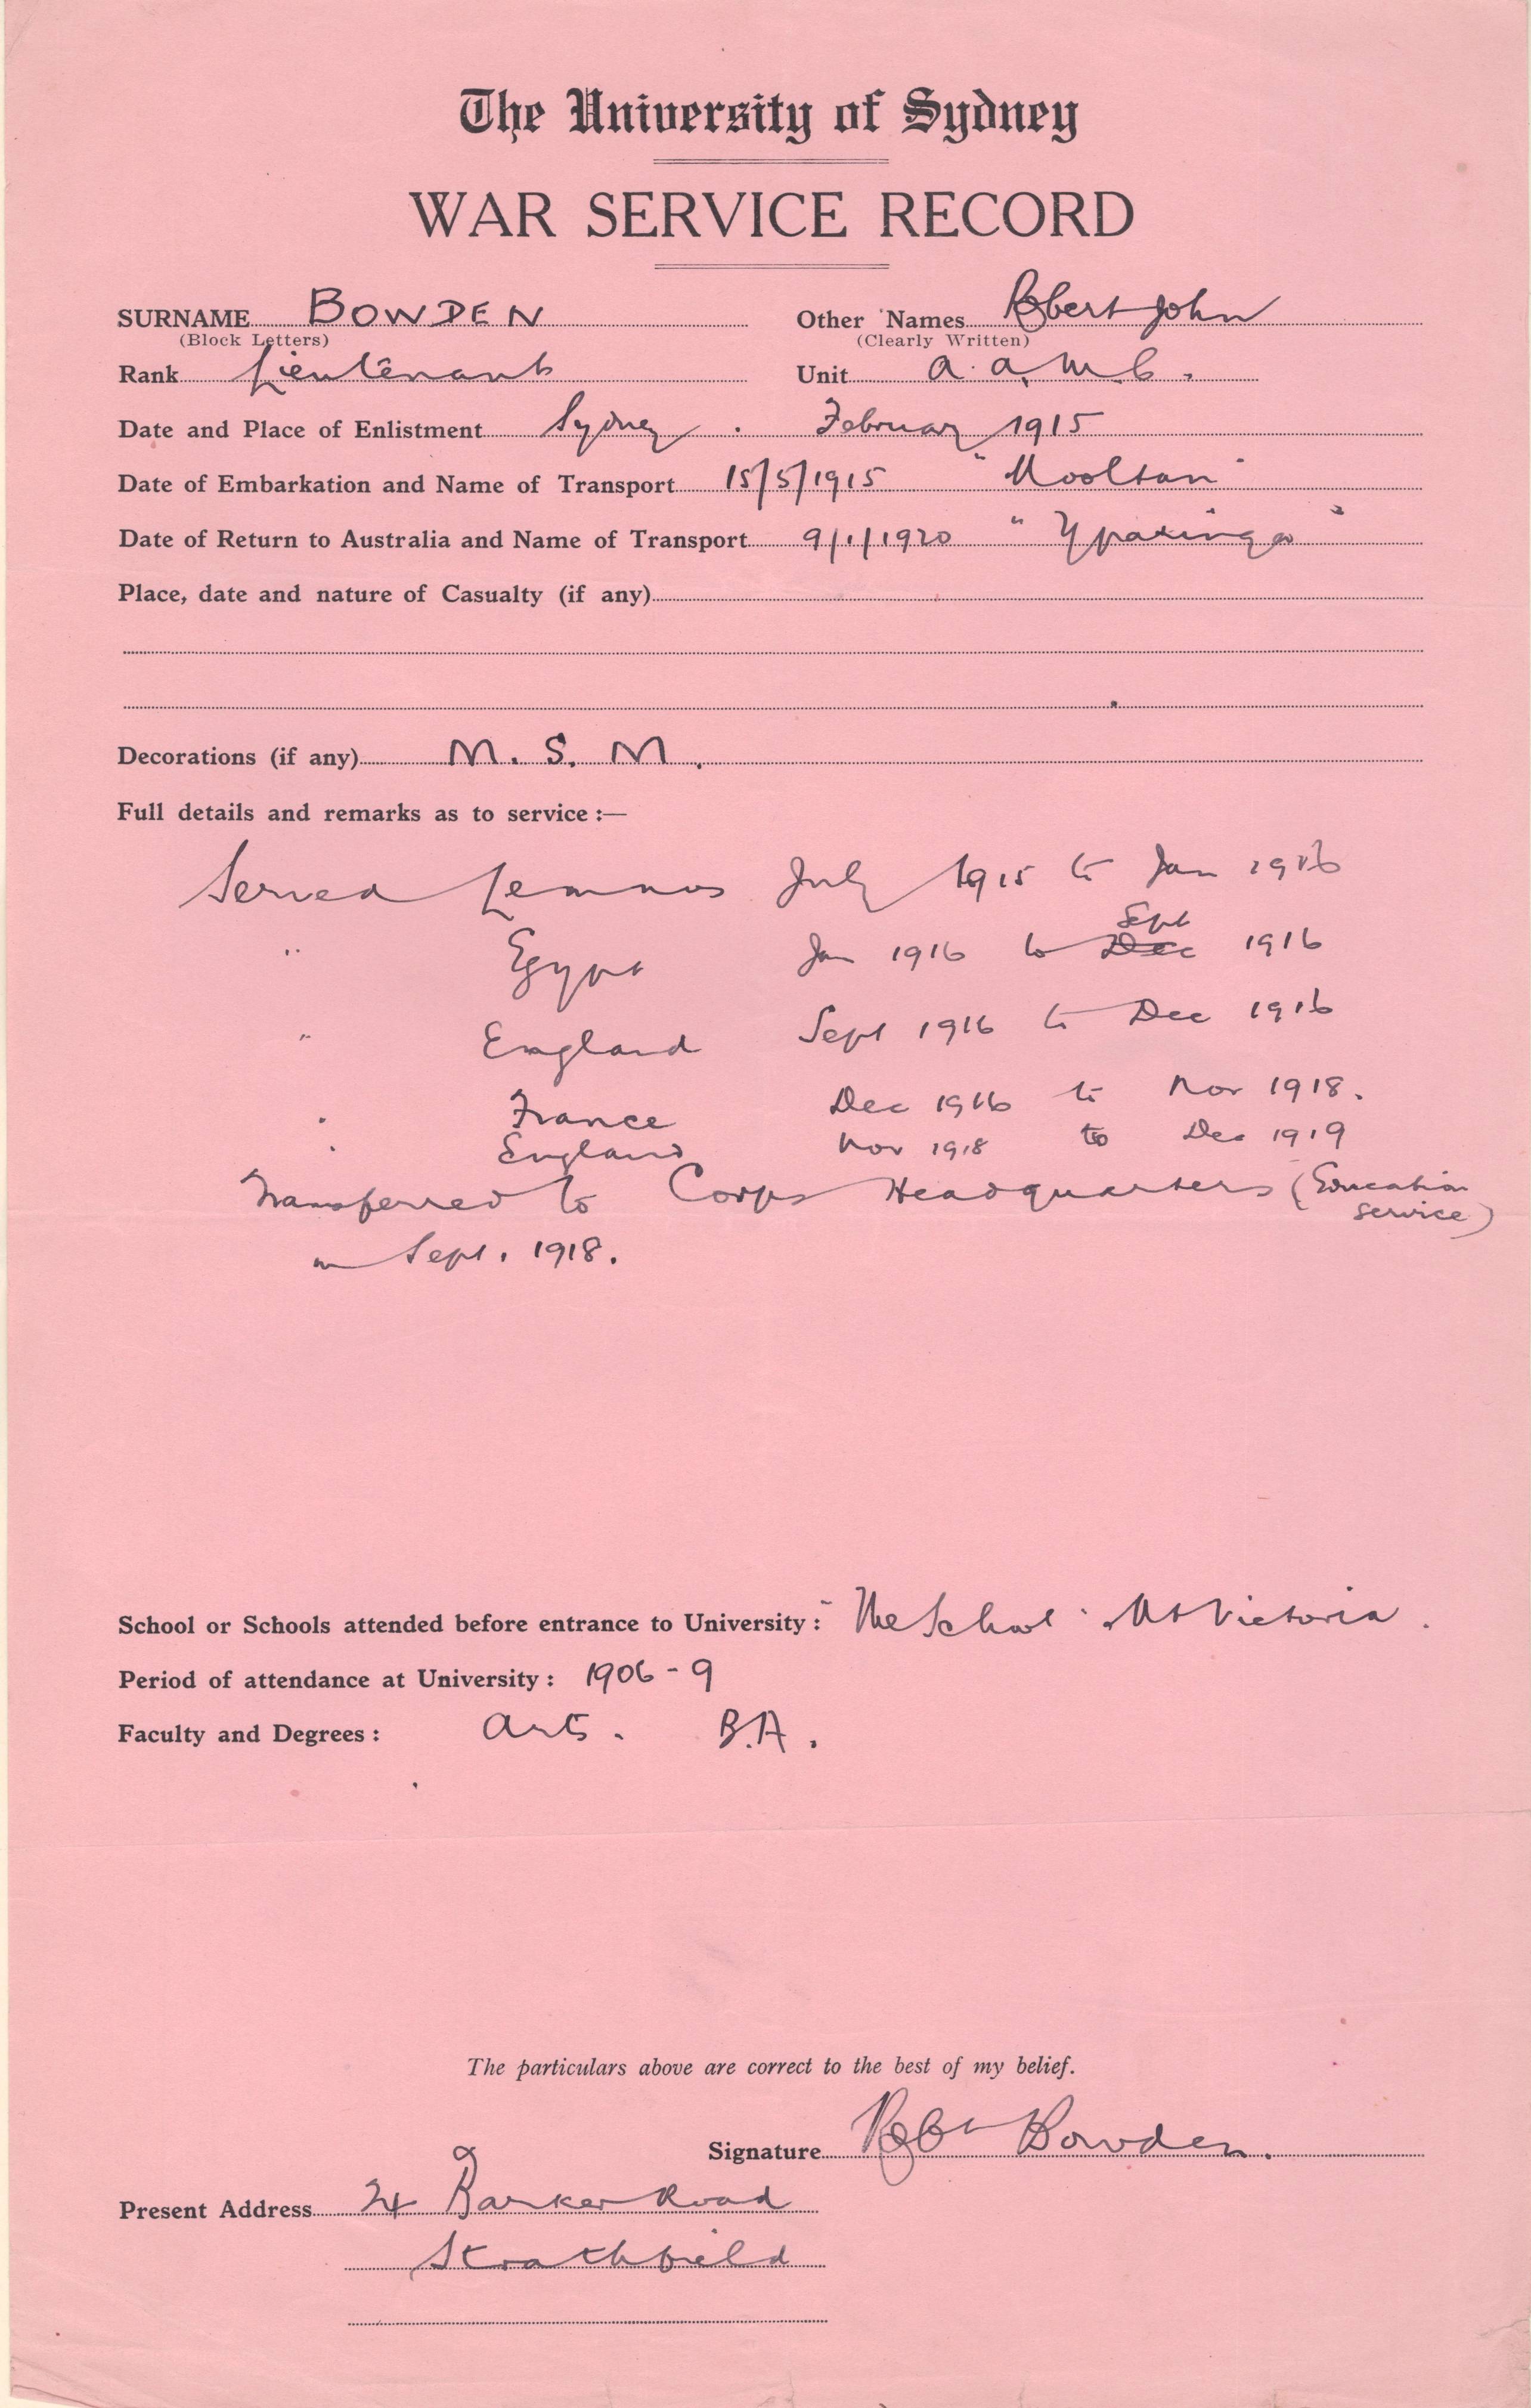 The University of Sydney
WAR SERVICE RECORD
SURNAME BOWDEN Other Names Robert John
(Block Letters) (Clearly Written)
Rank Lieutenant Unit A.A.M.C.
Date and Place of Enlistment Sydney. February 1915
Date of Embarkation and Name of Transport 15/5/1915 "Mooltan"
Date of Return to Australia and Name of Transport 9/1/1920 "Ypiringa"
Place, date and nature of Casualty (if any)
Decorations (if any) M.S.M.
Full details and remarks as to service :—
Served Lemnos July 1915 to Jan 1916
Sept
" Egypt Jan 1916 to Dec 1916
" England Sept 1916 to Dec 1916
" France Dec 1916 to Nov 1918.
" England Nov 1918 to Dec 1919
Transferred to Corps Headquarters (Education
service)
in Sept. 1918.
School or Schools attended before entrance to University : The School Mt Victoria.
Period of attendance at University : 1906-9
Faculty and Degrees : Arts. B.A.
The particulars above are correct to the best of my belief.
Signature Robt Bowden.
Present Address 24 Barker Road
Strathfield